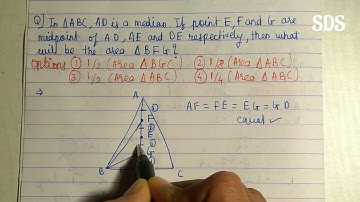 SDS
Q) In ΔABC, AD is a median. If point E, F and G are
midpoint of AD, AE and DE respectively, then what
will be the area ΔBFG?
options ① 1/2 (Area ΔABC) ② 1/8 (Area ΔABC)
③ 1/2 (Area ΔABC) ④ 1/4 (Area ΔABC)
→
A
F
E
G
B
C
AF = FE = EG = GD
equal ✓